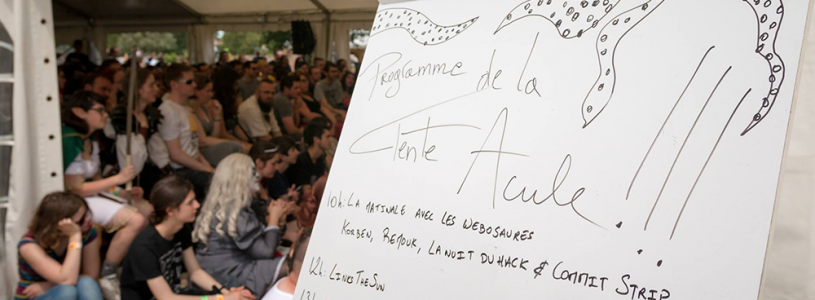 Programme de la
Tente Acule !!!
10h: LA MATINALE AVEC LES WEBOSAURES
KORBEN, REMOUK, LA NUIT DU HACK & COMMIT STRIP
12h: LINKSTHESUN
13h